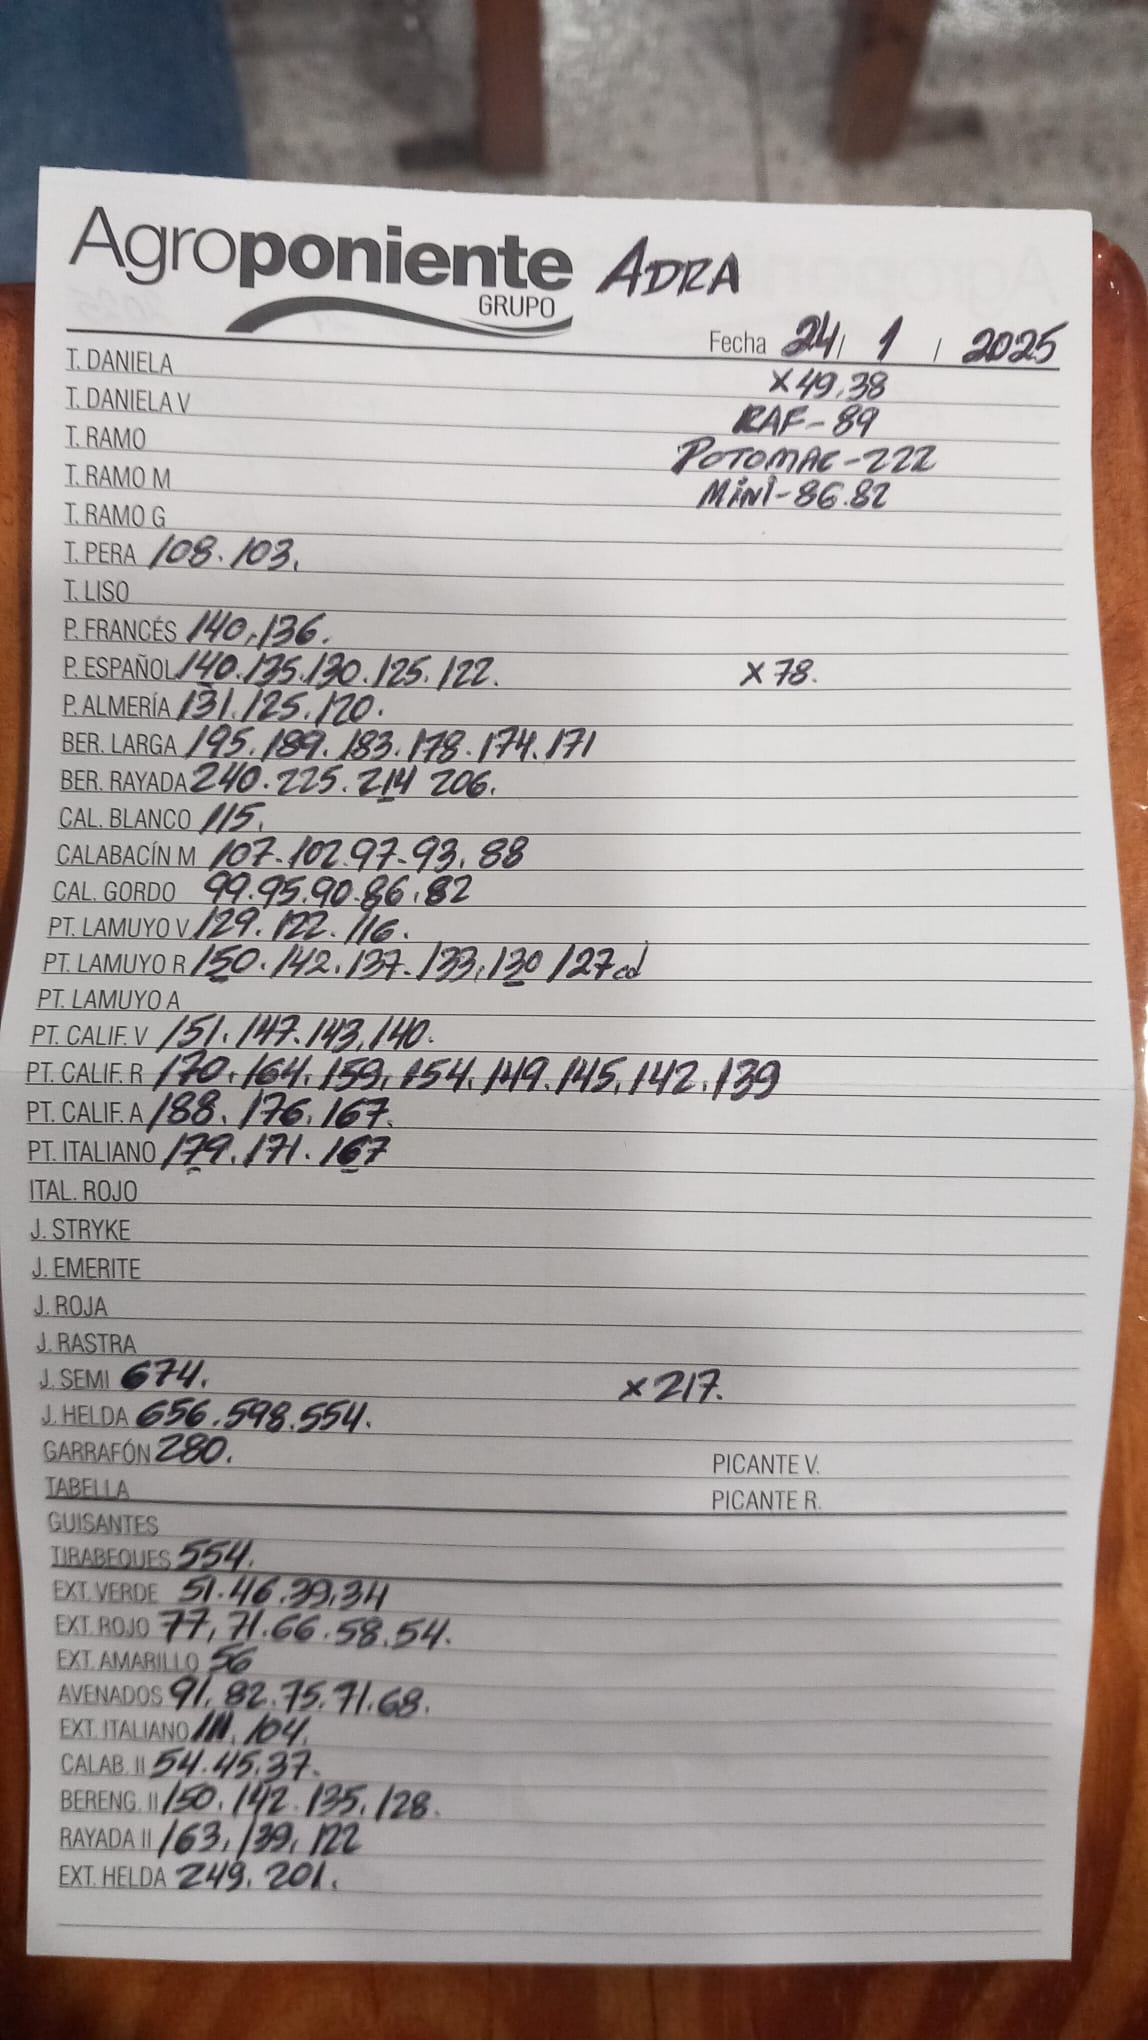 Agroponiente ADRA
GRUPO
Fecha 24 / 1 / 2025
T. DANIELA X 49.38
T. DANIELA V RAF-89
T. RAMO POTOMAC-222
T. RAMO M MINI-86.82
T. RAMO G
T. PERA 108.103.
T. LISO
P. FRANCÉS 140.136.
P. ESPAÑOL 140.135.130.125.122. X 78.
P. ALMERÍA 131.125.120.
BER. LARGA 195.189.183.178.174.171
BER. RAYADA 240.225.214 206.
CAL. BLANCO 115.
CALABACÍN M 107-102.97-93.88
CAL. GORDO 99.95.90.86.82
PT. LAMUYO V 129.122.116.
PT. LAMUYO R 150.142.137.133.130 127 cd
PT. LAMUYO A
PT. CALIF. V 151.147.143.140.
PT. CALIF. R 170.164.159.154.149.145.142.139
PT. CALIF. A 188.176.167.
PT. ITALIANO 179.171.167
ITAL. ROJO
J. STRYKE
J. EMERITE
J. ROJA
J. RASTRA
J. SEMI 674. X 217.
J. HELDA 656.598.554.
GARRAFÓN 280. PICANTE V.
TABELLA PICANTE R.
GUISANTES
TIRABEQUES 554.
EXT. VERDE 51.46.39.34
EXT. ROJO 77,71.66.58.54.
EXT. AMARILLO 56
AVENADOS 91.82.75.71.68.
EXT. ITALIANO 111.104.
CALAB. II 54.45.37.
BERENG. II 150.142.135.128.
RAYADA II 163,139,122
EXT. HELDA 249.201.